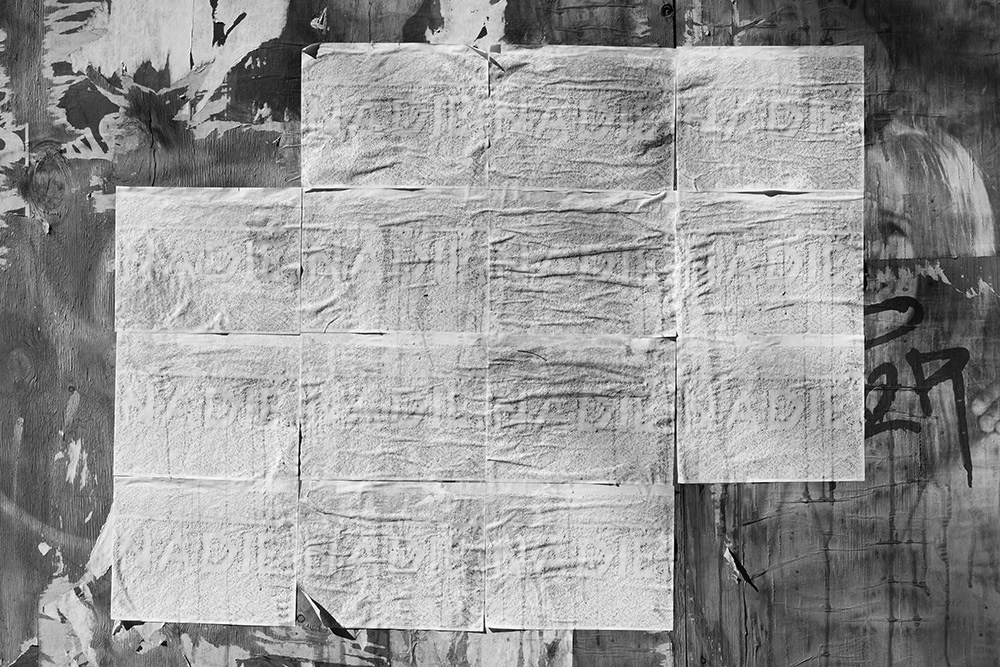 NADIE NADIE NADIE
NADIE NADIE NADIE NADIE
NADIE NADIE NADIE NADIE
NADIE NADIE NADIE